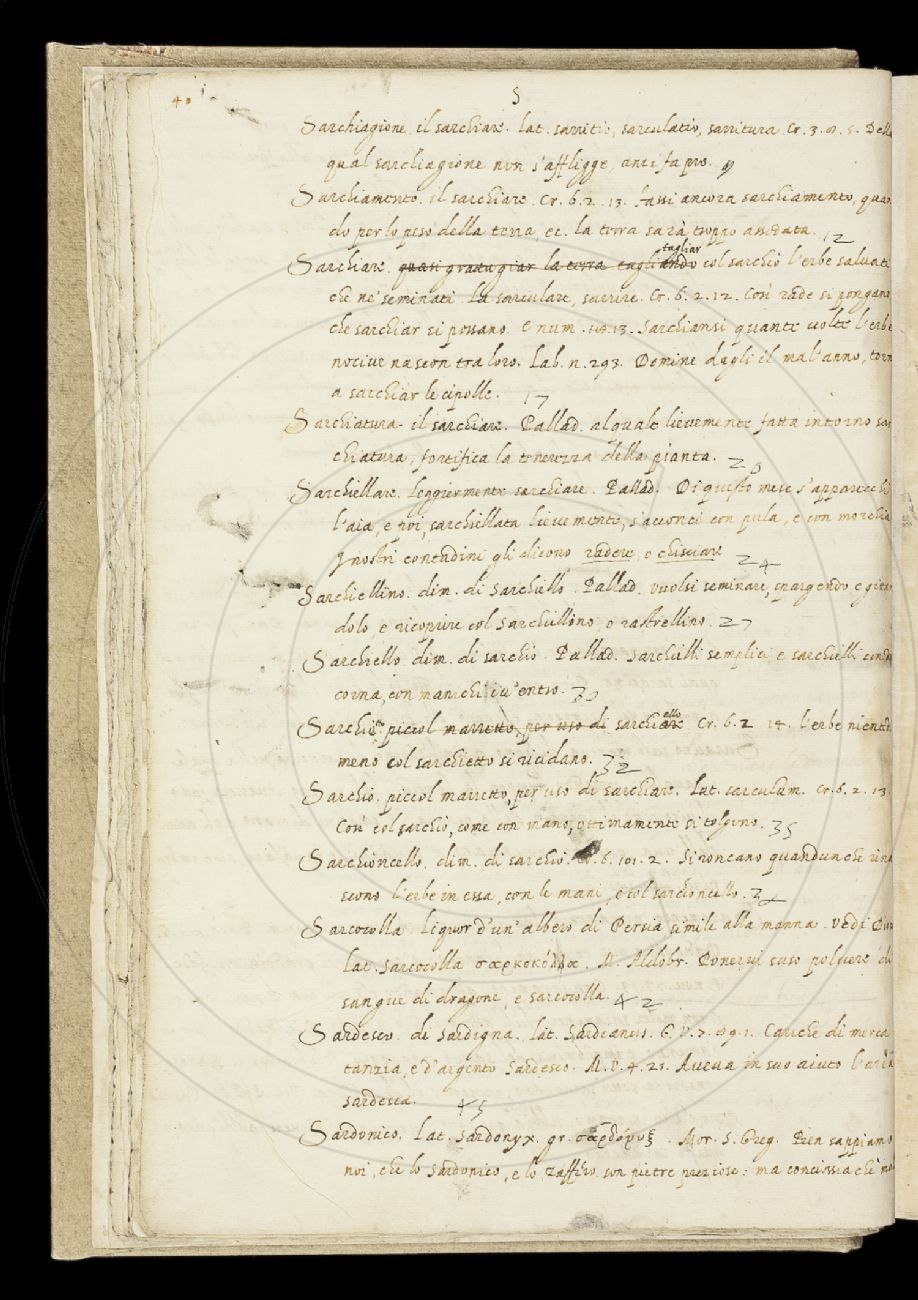 40
S
Sarchiagione. il sarchiare. lat. sarritio, sarculatio, sarritura. Cr. 3. 8. 5. Della
qual sarchiagione non s'affligge, anzi fa pro. 9
Sarchiamento. il sarchiare. Cr. 6. 2. 13. Fassi ancora sarchiamento, quan
do per lo peso della terra, ec. la terra sarà troppo assodata. 12
Sarchiare. quasi grattugiar la terra tagliando tagliar col sarchio l'erbe salvati
che ne' seminati. la sarculare, sarrire. Cr. 6. 2. 12. Così rade si pongano,
che sarchiar si possano. E num. 13. Sarchiansi quante volte l'erbe
nocive nascon tra loro. Lab. n. 293. Domine dagli il mal'anno, torn
a sarchiar le cipolle. 17
Sarchiatura. il sarchiare. Pallad. al quale lievemente fatta intorno sar
chiatura, fortifica la tenerezza della pianta. 20
Sarchiellare. leggiermente sarchiare. Pallad. Di questo mese s'apparecchi
l'aia, e poi, sarchiellata lievemente, s'acconci con pula, e con morchia
I nostri contadini gli dicono radere, o chisciare 24
Sarchiellino. dim. di sarchiello. Pallad. vuolsi seminare, spargendo e gitan
dolo, e ricoprire col sarchiellino o rastrellino. 27
Sarchiello. dim. di sarchio. Pallad. sarchielli semplici e sarchielli con du
corna, con manichi iv'entro. 30
Sarchietto. piccol marretto, per uso di sarchiare ello Cr. 6. 2 14. l'erbe nientedi
meno col sarchietto si ricidano. 32
Sarchio. piccol marretto, per uso di sarchiare. Lat. sarculum. Cr. 6. 2. 13.
Così col sarchio, come con mano, ottimamente si tolgono. 35
Sarchioncello. dim. di sarchio. Cr. 6. 101. 2. Si roncano quandunche rina
scono l'erbe in essa, con le mani, e col sarchioncello.
Sarcocolla. liquor d'un'albero di Persia simile alla manna. vedi
Lat. sarcocolla σαρκοκόλλα. M. Aldobr. Ponervi suso polvere di
sangue di dragone, e sarcocolla. 42
Sardesco. di Sardigna. lat. Sardianus. G. V. 7. Cariche di merca
tanzia, e d'argento Sardesco. M. V. 4. 21. Aveva in suo aiuto l'
sardesca. 45
Sardonico. Lat. sardonyx. gr. σαρδόνυξ. Mor. S. Greg. Ben sappiamo
noi, che lo sardonico, e lo zaffiro son pietre preziose: ma conciossia che